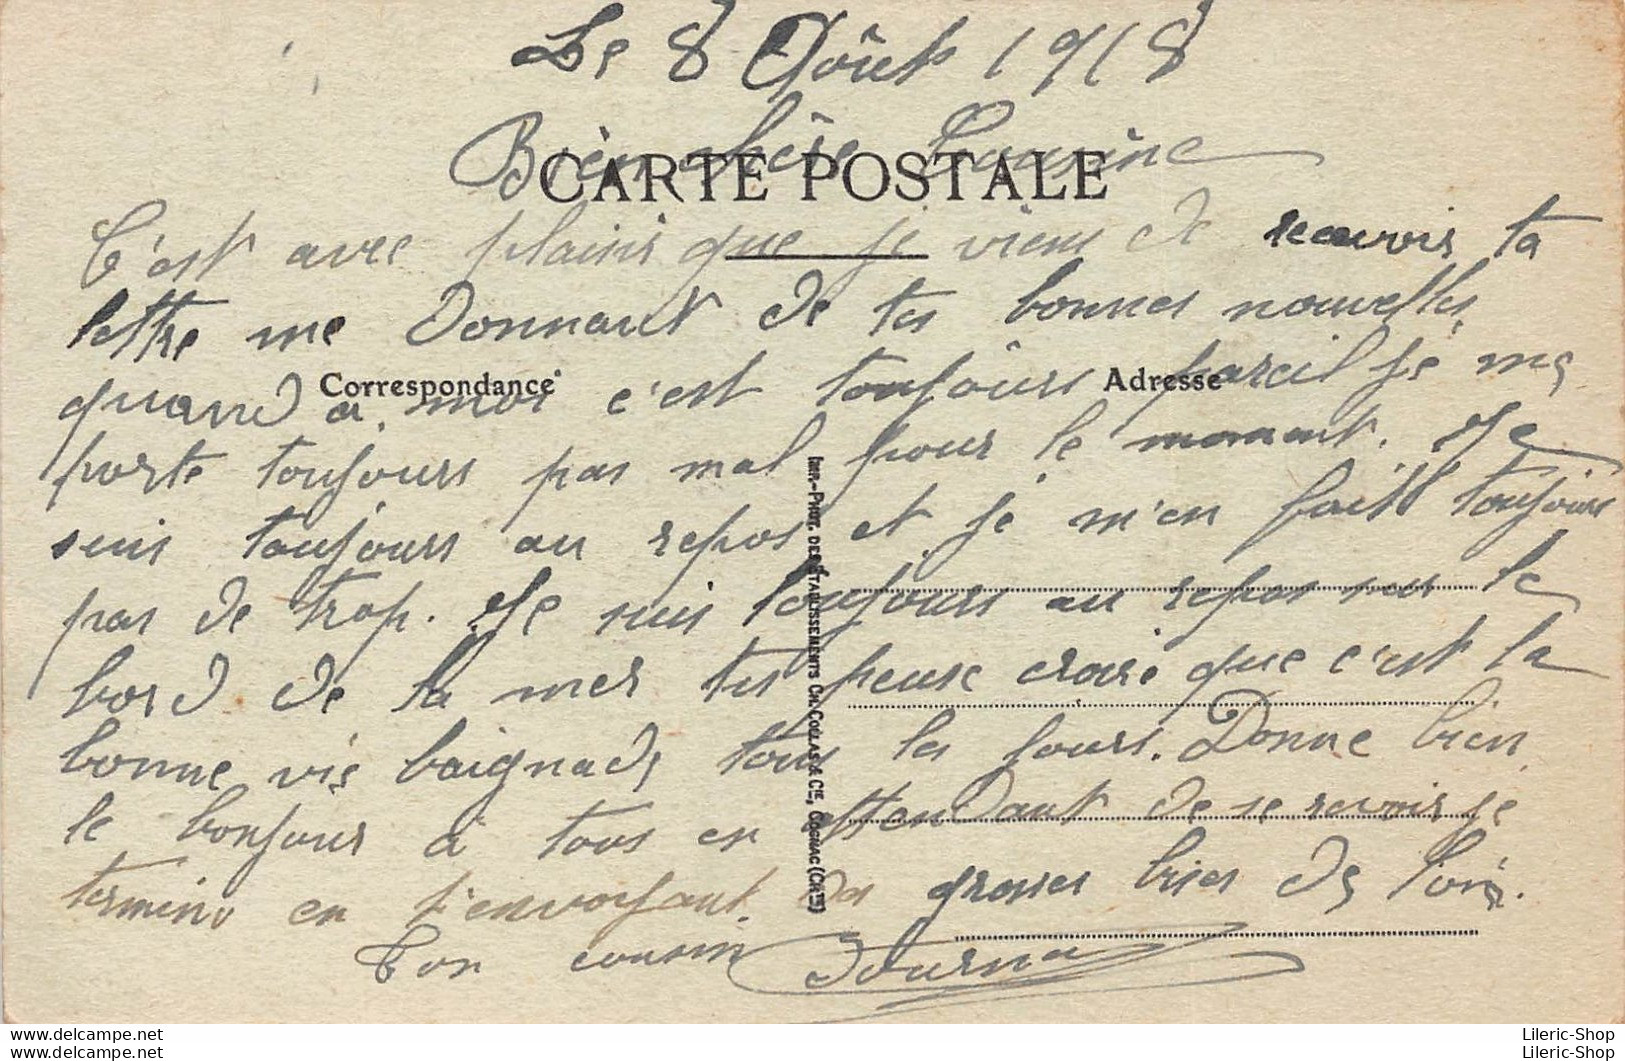 Le 8 Aôut 1918
Bien chère Cousine
CARTE POSTALE
C'est avec plaisir que je viens de recevoir ta
lettre me donnant de tes bonnes nouvelles,
quand a moi c'est toujours pareil je me
Correspondance Adresse
porte toujours pas mal pour le moment. Je
suis toujours au repos et je m'en fait toujours
pas de trop. Je suis toujours au repos sur le
bord de la mer tu peux croire que c'est la
bonne vie baignade tous les jours. Donne bien
le bonjour à tous en attendant de se revoir je
termine en t'envoyant de grosses bises de loin.
Ton cousin
IMP.-PHOT. DES ETABLISSEMENTS CH. COLLAS & CIE, COGNAC (CHTE)
Lileric-Shop
Lileric-Shop
www.delcampe.net
www.delcampe.net